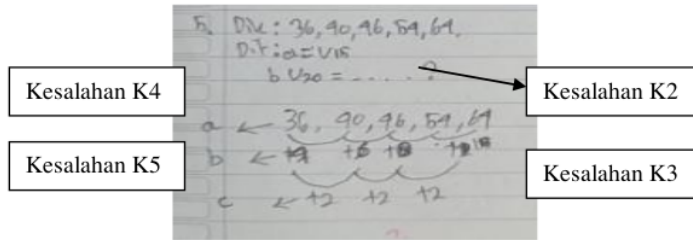 5. Dik : 36, 40, 46, 54, 64.
Dit : a = U15
b U20 = ..... ?
Kesalahan K4
Kesalahan K2
a ← 36, 40, 46, 54, 64
Kesalahan K5
b ← +4 +6 +8 +10
Kesalahan K3
c ← +2 +2 +2